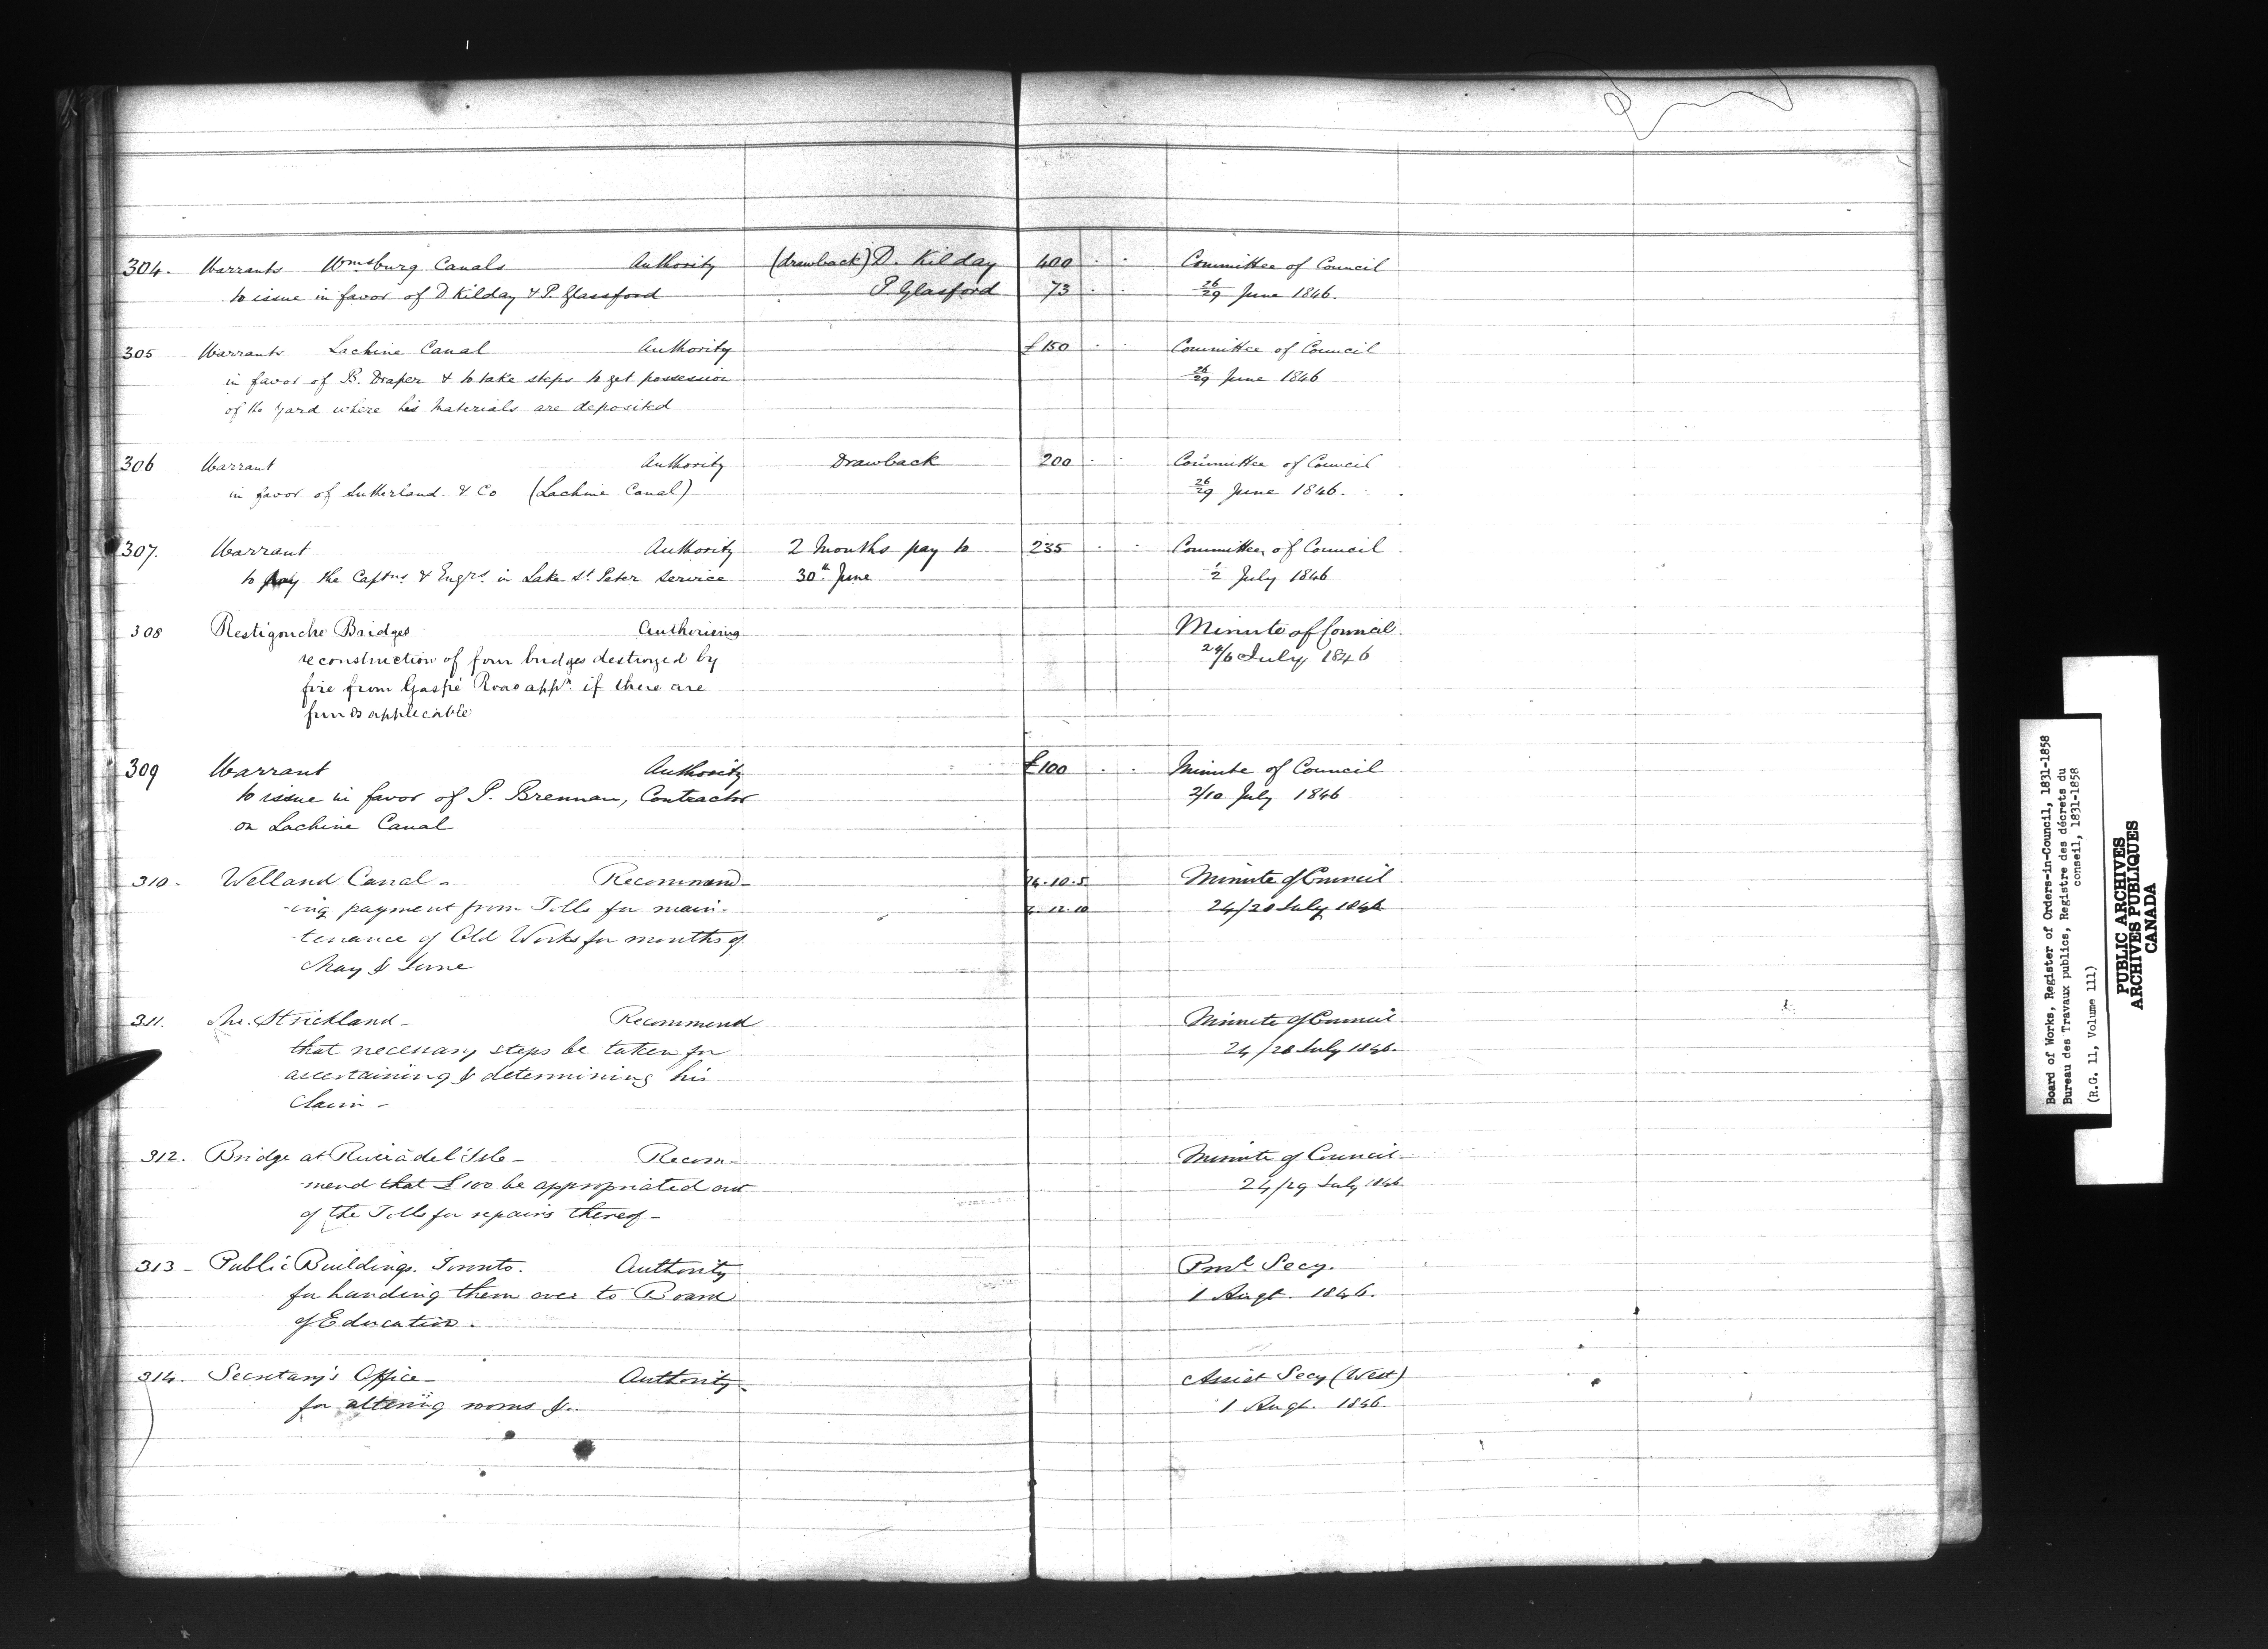 304. Warrants Wmsburg Canals Authority (drawback) D. Kilday 400 Committee of Council
to issue in favor of D Kilday & P. Glassford P. Glasford 73 26/29 June 1846.
305 Warrants Lachine Canal Authority £150 Committee of Council
in favor of B. Draper & to take steps to get possession 26/29 June 1846
of the yard where his materials are deposited
306 Warrant Authority Drawback 200 Committee of Council
in favor of Sutherland & Co (Lachine Canal) 26/29 June 1846.
307. Warrant Authority 2 Months pay to 235 Committee of Council
to pay the Captns. & Engrs. in Lake St. Peter Service 30th June 1/2 July 1846
308 Restigouche Bridges Authorising Minute of Council
reconstruction of four bridges destroyed by 29/6 July 1846
fire from Gaspé Road appn. if there are
funds applicable
309 Warrant Authority £100 Minute of Council
to issue in favor of P. Brennan, Contractor 2/10 July 1846
on Lachine Canal
310. Welland Canal - Recommend- .10.5 Minute of Council
-ing payment from Tolls for main- .12.10 24/28 July 1846
-tenance of Old Works for months of
May & June
311. Mr. Strickland - Recommend Minute of Council
that necessary steps be taken for 24/28 July 1846.
ascertaining & determining his
Claim -
312. Bridge at Riviere del'Isle - Recom- Minute of Council
-mend that £100 be appropriated out 24/29 July 1846
of the Tolls for repairs thereof -
313 - Public Buildings. Toronto. Authority Provl. Secy.
for handing them over to Board 1 Augt. 1846.
of Education.
314. Secretary's Office - Authority - Assist Secy (West)
for altering rooms &c. 1 Augt. 1846.
Board of Works, Register of Orders-in-Council, 1831-1858
Bureau des Travaux publics, Registre des décrets du
conseil, 1831-1858
(R.G. 11, Volume 111)
PUBLIC ARCHIVES
ARCHIVES PUBLIQUES
CANADA